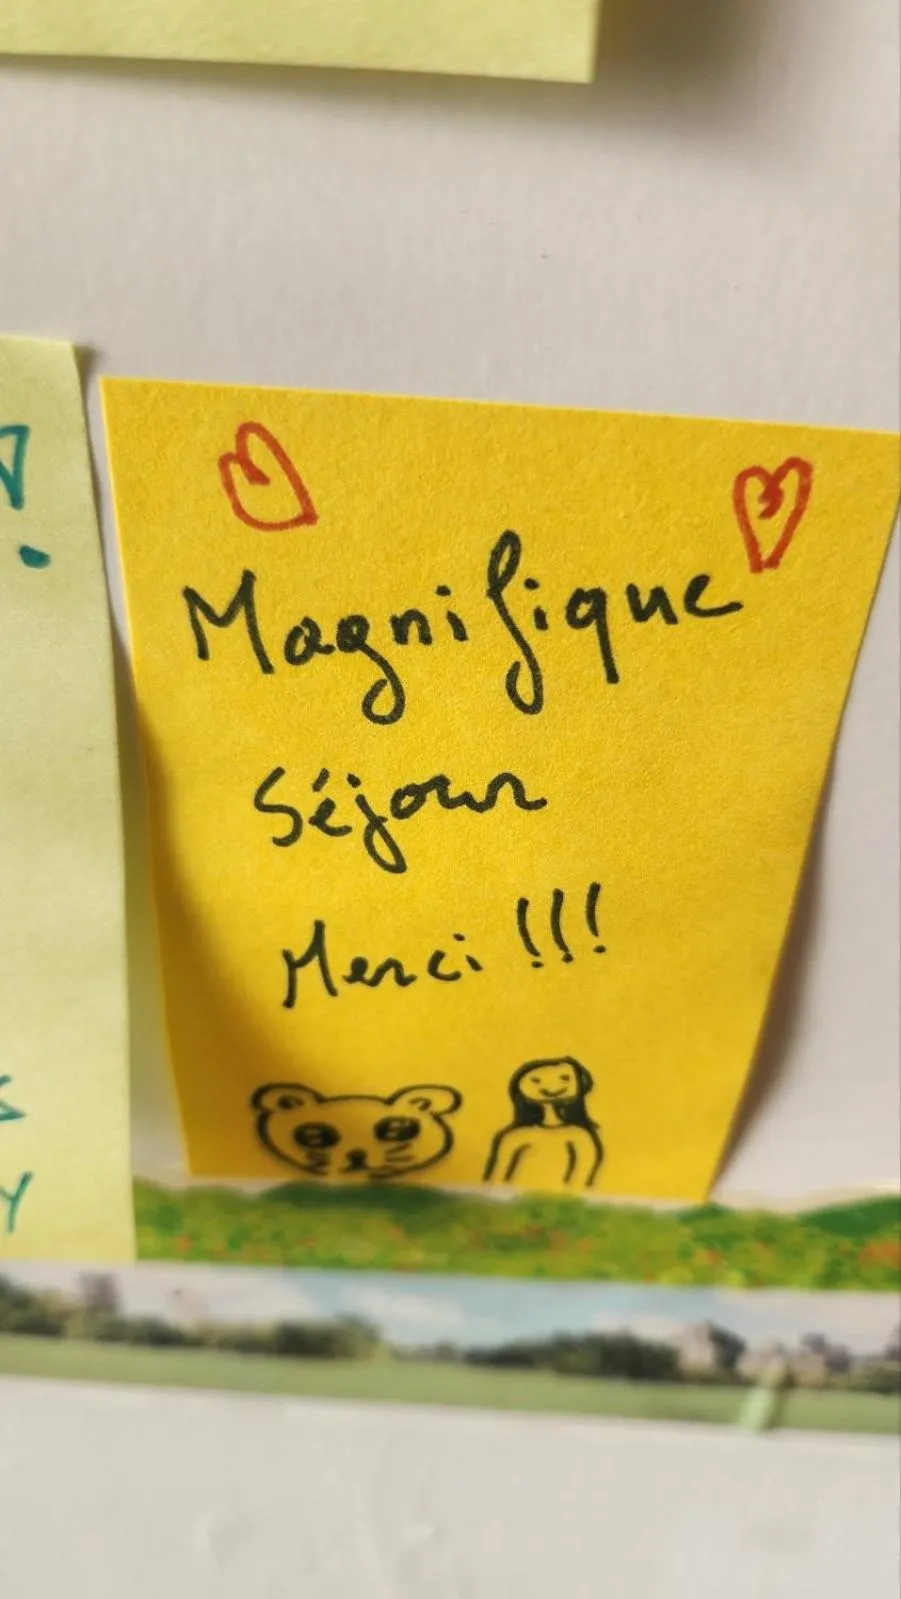 Magnifique
Séjour
Merci !!!